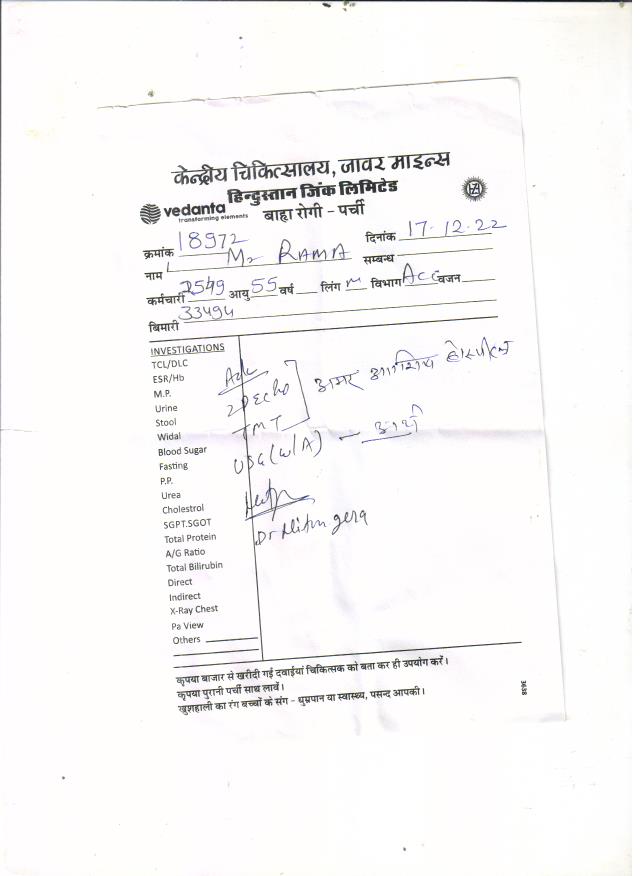 केन्द्रीय चिकित्सालय, जावर माइन्स
हिन्दुस्तान जिंक लिमिटेड
vedanta
transforming elements
बाहा रोगी - पर्ची
क्रमांक 18972 दिनांक 17-12-22
नाम Mr RAMA सम्बन्ध
कर्मचारी 2549 आयु 55 वर्ष लिंग m विभाग Acc वजन
33494
बिमारी
INVESTIGATIONS
TCL/DLC
ESR/Hb
M.P.
Urine
Stool
Widal
Blood Sugar
Fasting
P.P.
Urea
Cholestrol
SGPT.SGOT
Total Protein
A/G Ratio
Total Bilirubin
Direct
Indirect
X-Ray Chest
Pa View
Others
Adv
2D Echo
TMT
अमर आशिष होस्पीटल
USG (W/A) -
Dr Nitin gera
कृपया बाजार से खरीदी गई दवाईयां चिकित्सक को बता कर ही उपयोग करें।
कृपया पुरानी पर्ची साथ लावें।
खुशहाली का रंग बच्चों के संग - धुम्रपान या स्वास्थ्य, पसन्द आपकी।
3638